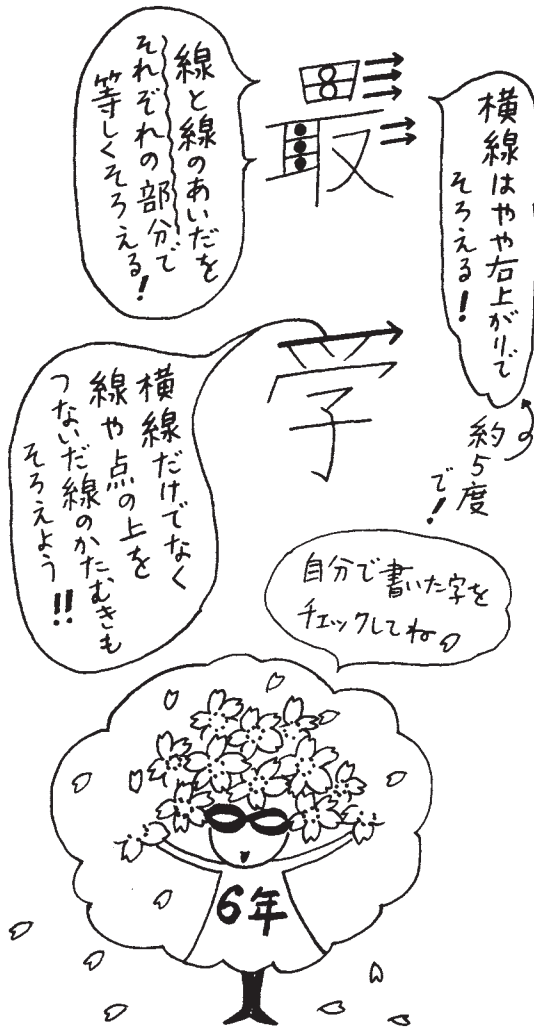 最
横線はやや右上がりで
そろえる!
約5度
で!
線と線のあいだを
それぞれの部分で
等しくそろえる!
学
横線だけでなく
線や点の上を
つないだ線のかたむきも
そろえよう!!
自分で書いた字を
チェックしてね
6年